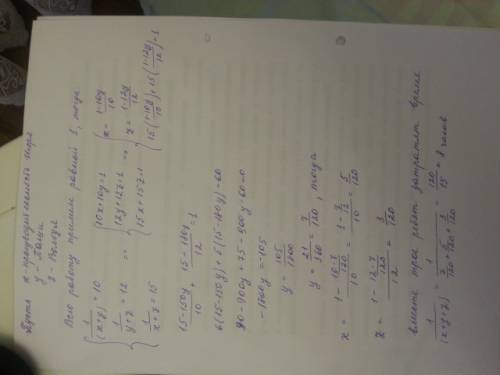 Пусть x - производительность Игоря
y - Паши
z - Володи
Всю работу примем равной 1, тогда
{ 1/(x+y) = 10
{ 1/(y+z) = 12 =>
{ 1/(x+z) = 15
{ 10x+10y=1
{ 12y+12z=1 =>
{ 15x+15z=1
{ x = (1-10y)/10
{ z = (1-12y)/12
{ 15((1-10y)/10)+15((1-12y)/12)=1
(15-150y)/10 + (15-180y)/12 = 1
6(15-150y)+5(15-180y)=60
90-900y+75-900y-60=0
-1800y=-105
y = 105/1800
y = 21/360 = 7/120, тогда
x = (1-10·7/120)/10 = (1-7/12)/10 = 5/120
z = (1-12·7/120)/12 = 3/120
Вместе трое ребят затратят время
1/(x+y+z) = 1/(7/120+5/120+3/120) = 120/15 = 8 часов